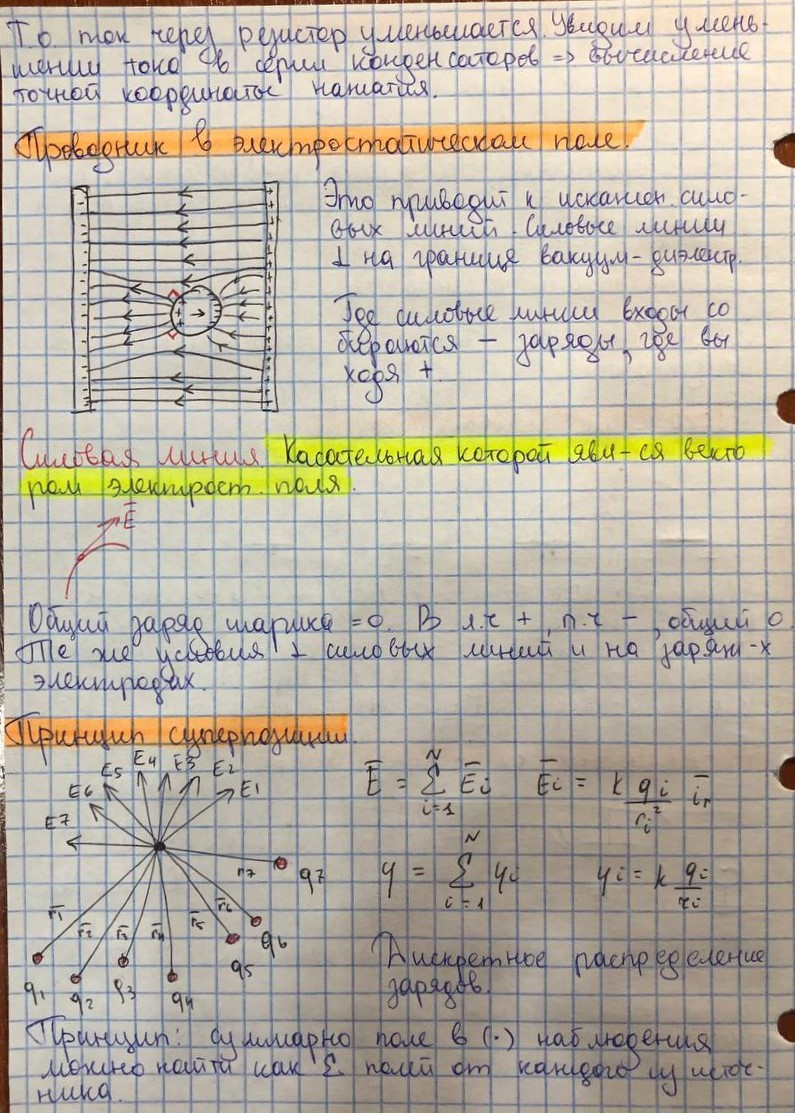 То ток через резистор уменьшается. Увидим умень-
шении тока в серии конденсаторов => вычисление
точной координаты нажатия.
Проводник в электростатическом поле.
Это приводит к искажен. сило-
вых линий. Силовые линии
⊥ на границе вакуум-диэлектр.
Где силовые линии входы со
бираются – заряды, где вы
ходя +
Силовая линия. Касательная которой явл-ся векто
ром электрост. поля.
E̅
Общий заряд шарика = 0. В л.ч +, п.ч –, общий 0
Те же условия ⊥ силовых линий и на заряж-х
электродах.
Принцип суперпозиции.
E7 E6 E5 E4 E3 E2 E1
r̅1 r̅2 r̅3 r̅4 r̅5 r̅6 r7
q1 q2 q3 q4 q5 q6 q7
E̅ = Σ E̅i N i=1 E̅i = k qi/ri² i̅r
φ = Σ φi N i=1 φi = k qi/ri
Дискретное распределение
зарядов.
Принцип: суммарно поле в (·) наблюдения
можно найти как Σ полей от каждого из источ-
ника.